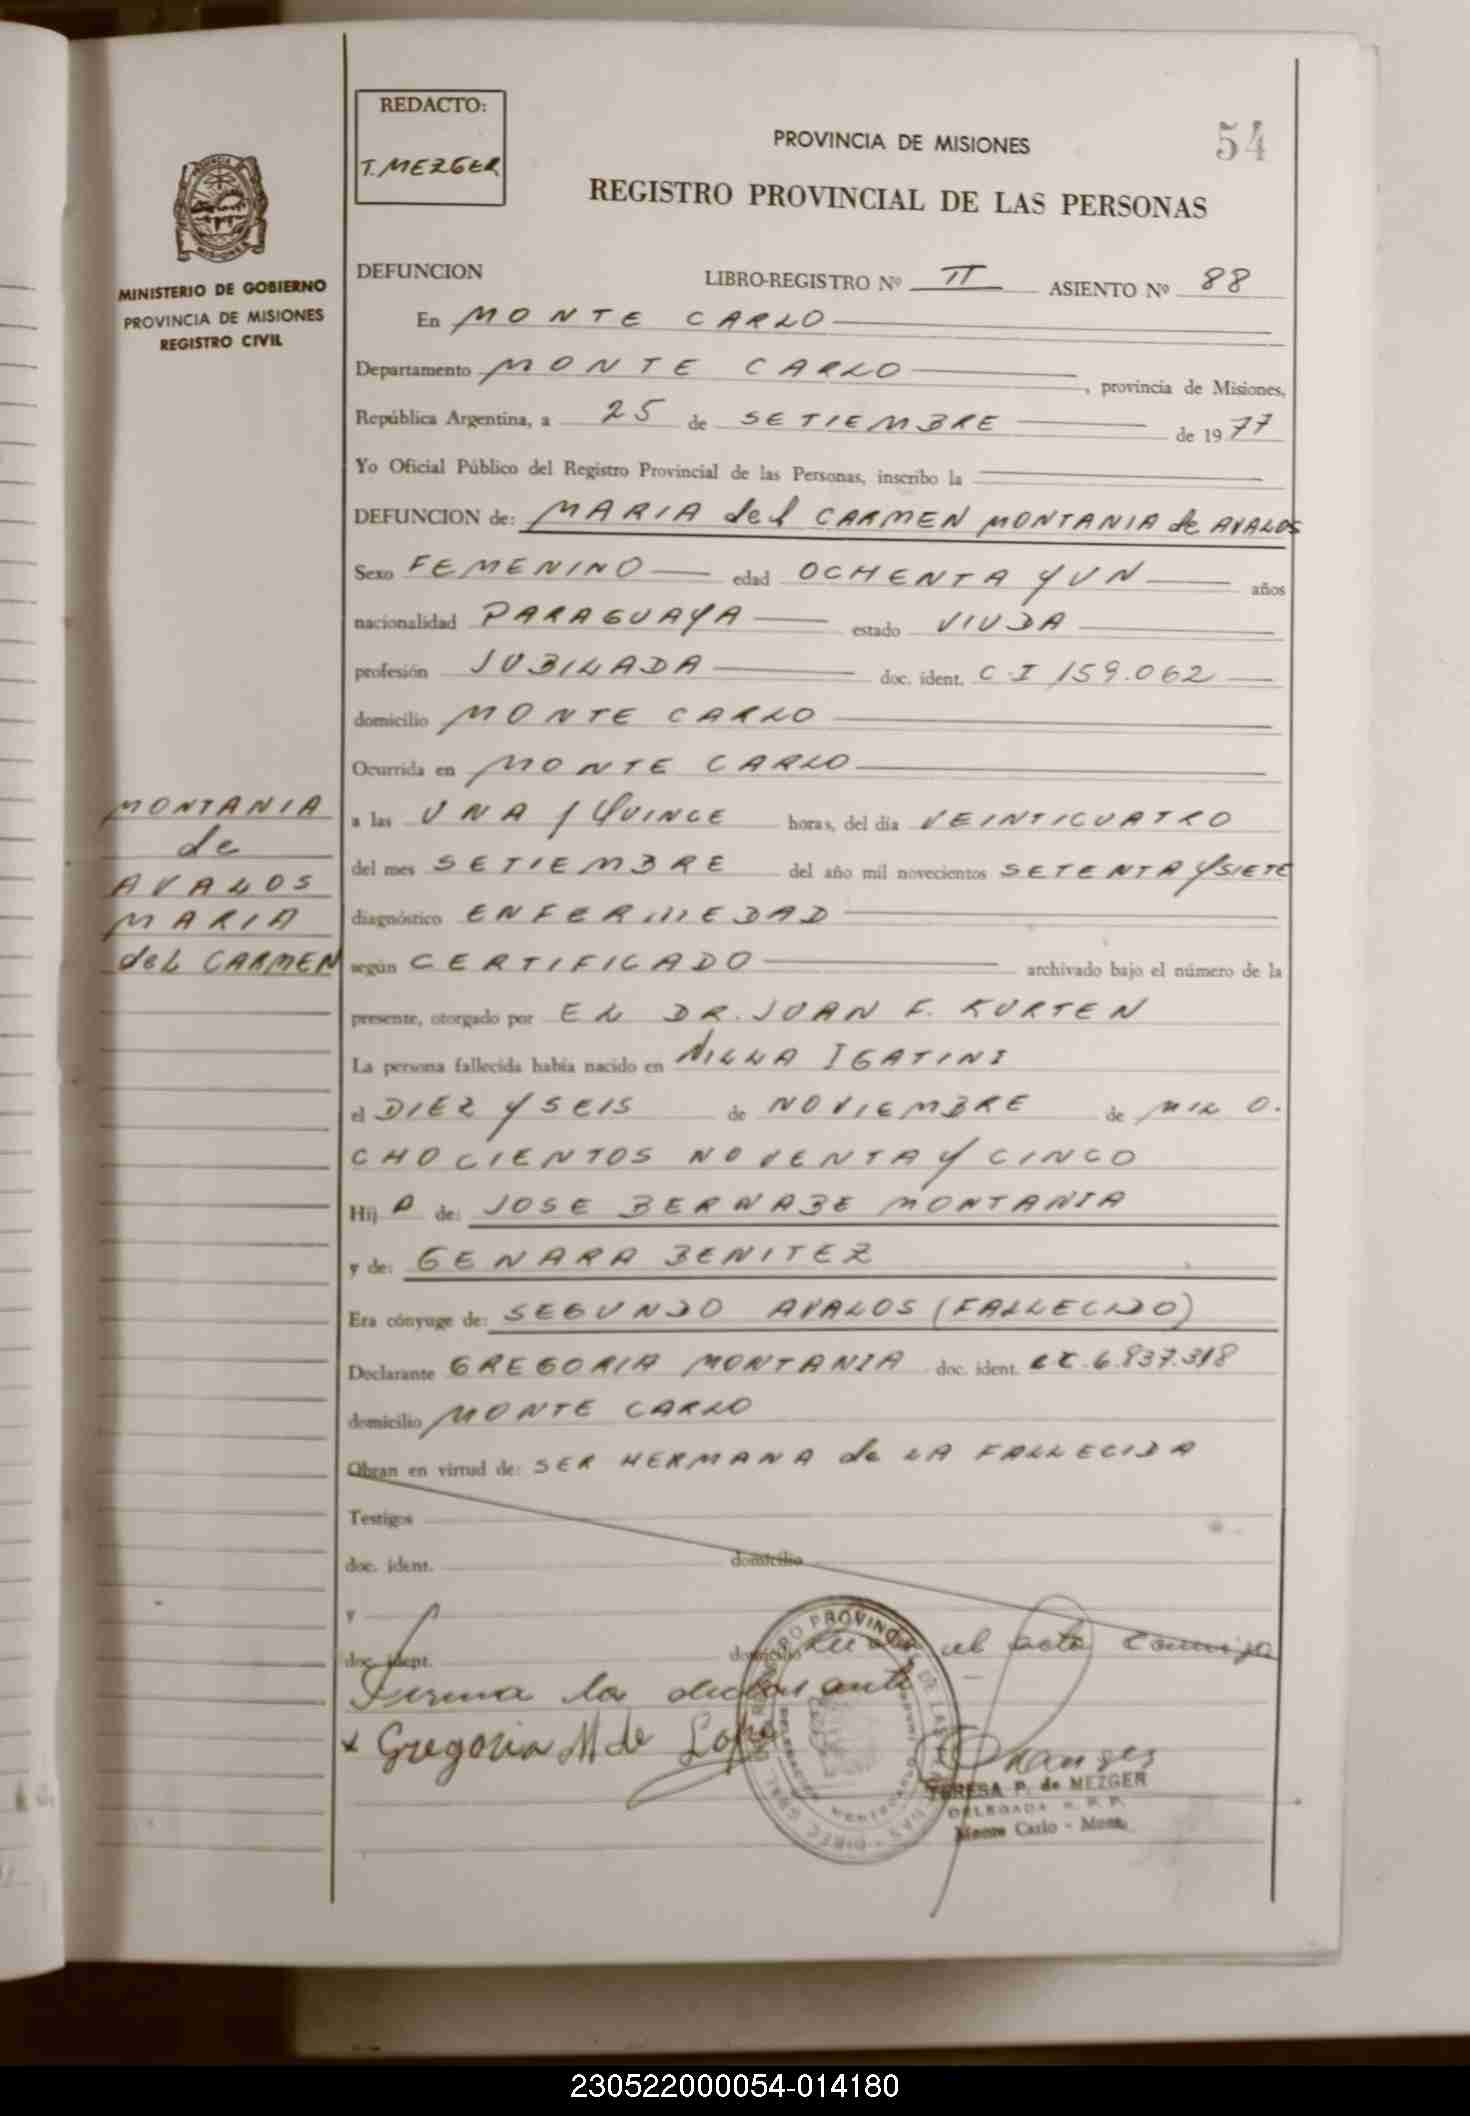 REDACTO:
T. MEZGER
54
PROVINCIA DE MISIONES
REGISTRO PROVINCIAL DE LAS PERSONAS
MINISTERIO DE GOBIERNO
PROVINCIA DE MISIONES
REGISTRO CIVIL
DEFUNCION LIBRO-REGISTRO Nº II ASIENTO Nº 88
En MONTE CARLO
Departamento MONTE CARLO, provincia de Misiones,
República Argentina, a 25 de SETIEMBRE de 1977
Yo Oficial Público del Registro Provincial de las Personas, inscribo la
DEFUNCION de: MARIA del CARMEN MONTANIA de AVALOS
Sexo FEMENINO edad OCHENTA Y UN años
nacionalidad PARAGUAYA estado VIUDA
profesión JUBILADA doc. ident. C I 159.062
domicilio MONTE CARLO
Ocurrida en MONTE CARLO
MONTANIA
de
AVALOS
MARIA
del CARMEN
a las UNA Y QUINCE horas, del día VEINTICUATRO
del mes SETIEMBRE del año mil novecientos SETENTA Y SIETE
diagnóstico ENFERMEDAD
según CERTIFICADO archivado bajo el número de la
presente, otorgado por EL DR. JUAN F. KURTEN
La persona fallecida había nacido en VILLA IGATINI
el DIEZ Y SEIS de NOVIEMBRE de MIL O.
CHOCIENTOS NOVENTA Y CINCO
Hij A de: JOSE BERNABE MONTANIA
y de: GENARA BENITEZ
Era cónyuge de: SEGUNDO AVALOS (FALLECIDO)
Declarante GREGORIA MONTANIA doc. ident. 6.837.318
domicilio MONTE CARLO
Obran en virtud de: SER HERMANA de LA FALLECIDA
Testigos
doc. ident. domicilio
y
doc. ident. domicilio el acta conmigo
Firma la declarante
x Gregoria M de
TERESA P. de MEZGER
DELEGADA R. P. P.
Monte Carlo - Mnes.
230522000054-014180